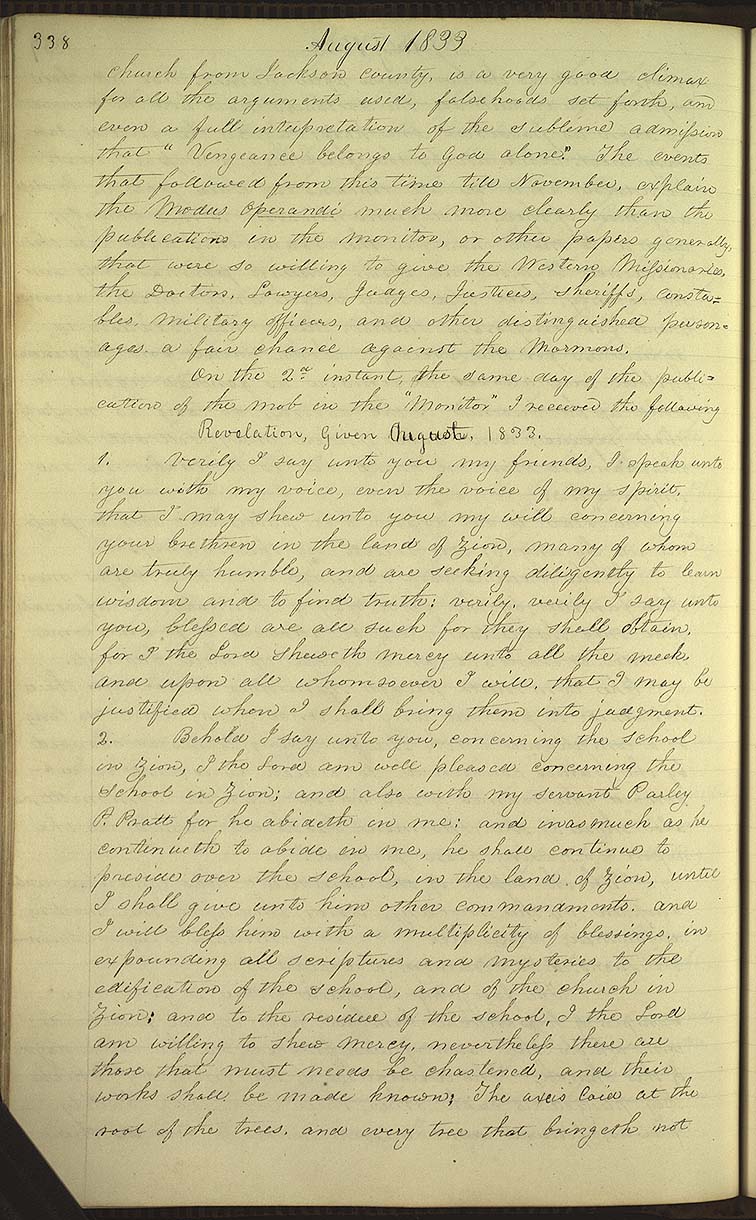 338
August 1833
church from Jackson county, is a very good climax
for all the arguments used, falsehoods set forth, and
even a full interpretation of the sublime admission
that "Vengeance belongs to God alone." The events
that followed from this time till November, explain
the Modus Operandi much more clearly than the
publications in the monitor, or other papers generally,
that were so willing to give the Western Missionaries,
the Doctors, Lawyers, Judges, Justices, Sheriffs, consta=
bles, military officers, and other distinguished person=
ages a fair chance against the Mormons.
On the 2nd instant, the same day of the publi=
cation of the mob in the "Monitor" I received the following
Revelation, Given August, 1833.
1. Verily I say unto you my friends, I speak unto
you with my voice, even the voice of my spirit,
that I may shew unto you my will concerning
your brethren in the land of Zion, many of whom
are truly humble, and are seeking diligently to learn
wisdom and to find truth; verily, verily I say unto
you, blessed are all such for they shall obtain,
for I the Lord sheweth mercy unto all the meek,
and upon all whomsoever I will, that I may be
justified when I shall bring them into judgment.
2. Behold I say unto you, concerning the school
in Zion, I the Lord am well pleased concerning the
school in Zion; and also with my servant Parley
P. Pratt for he abideth in me; and inasmuch as he
continueth to abide in me, he shall continue to
preside over the school, in the land of Zion, until
I shall give unto him other commandments. and
I will bless him with a multiplicity of blessings, in
expounding all scriptures and mysteries to the
edification of the school, and of the church in
Zion; and to the residue of the school, I the Lord
am willing to shew mercy, nevertheless there are
those that must needs be chastened, and their
works shall be made known; The axe is laid at the
root of the trees, and every tree that bringeth not